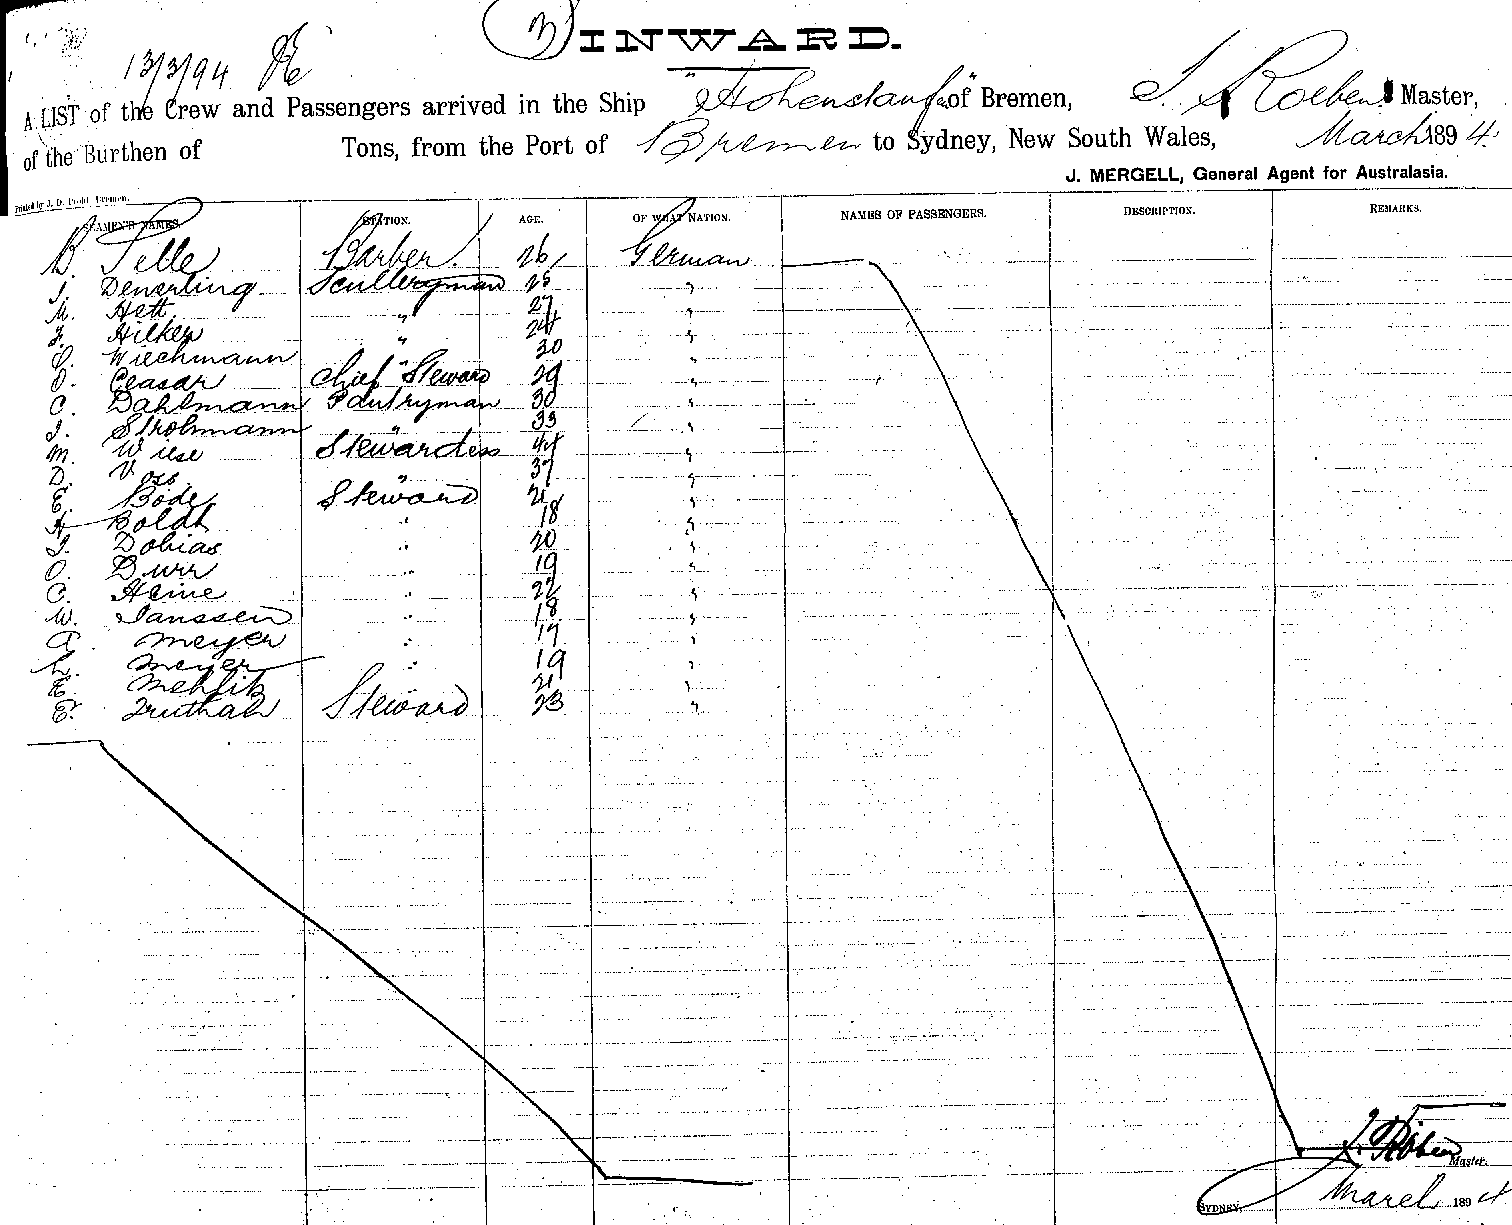 3 INWARD.
13/3/94
A LIST of the Crew and Passengers arrived in the Ship "Hohenstauf" of Bremen, Roeben Master,
of the Burthen of Tons, from the Port of Bremen to Sydney, New South Wales, March 1894.
J. MERGELL, General Agent for Australasia.
SEAMEN'S NAMES. STATION. AGE. OF WHAT NATION. NAMES OF PASSENGERS. DESCRIPTION. REMARKS.
Pelle Barber. 26 German
Denerling Sculleryman 25 "
M. Hett " 27 "
F. Hilker " 24 "
Wiechmann " 30 "
O. Ceasar Chief Steward 29 "
C. Dahlmann Pantryman 30 "
J. Strohmann " 33 "
M. Wiese Stewardess 44 "
D. Voss " 37 "
E. Bode Steward 21 "
H Boldt " 18 "
J. Dobias " 20 "
O. Durr " 19 "
C. Heine " 22 "
W. Janssen " 18 "
A. Meyer " 17 "
L. Meyer " 19 "
E. 21 "
E. Truthah Steward 23 "
Master.
SYDNEY, March 1894